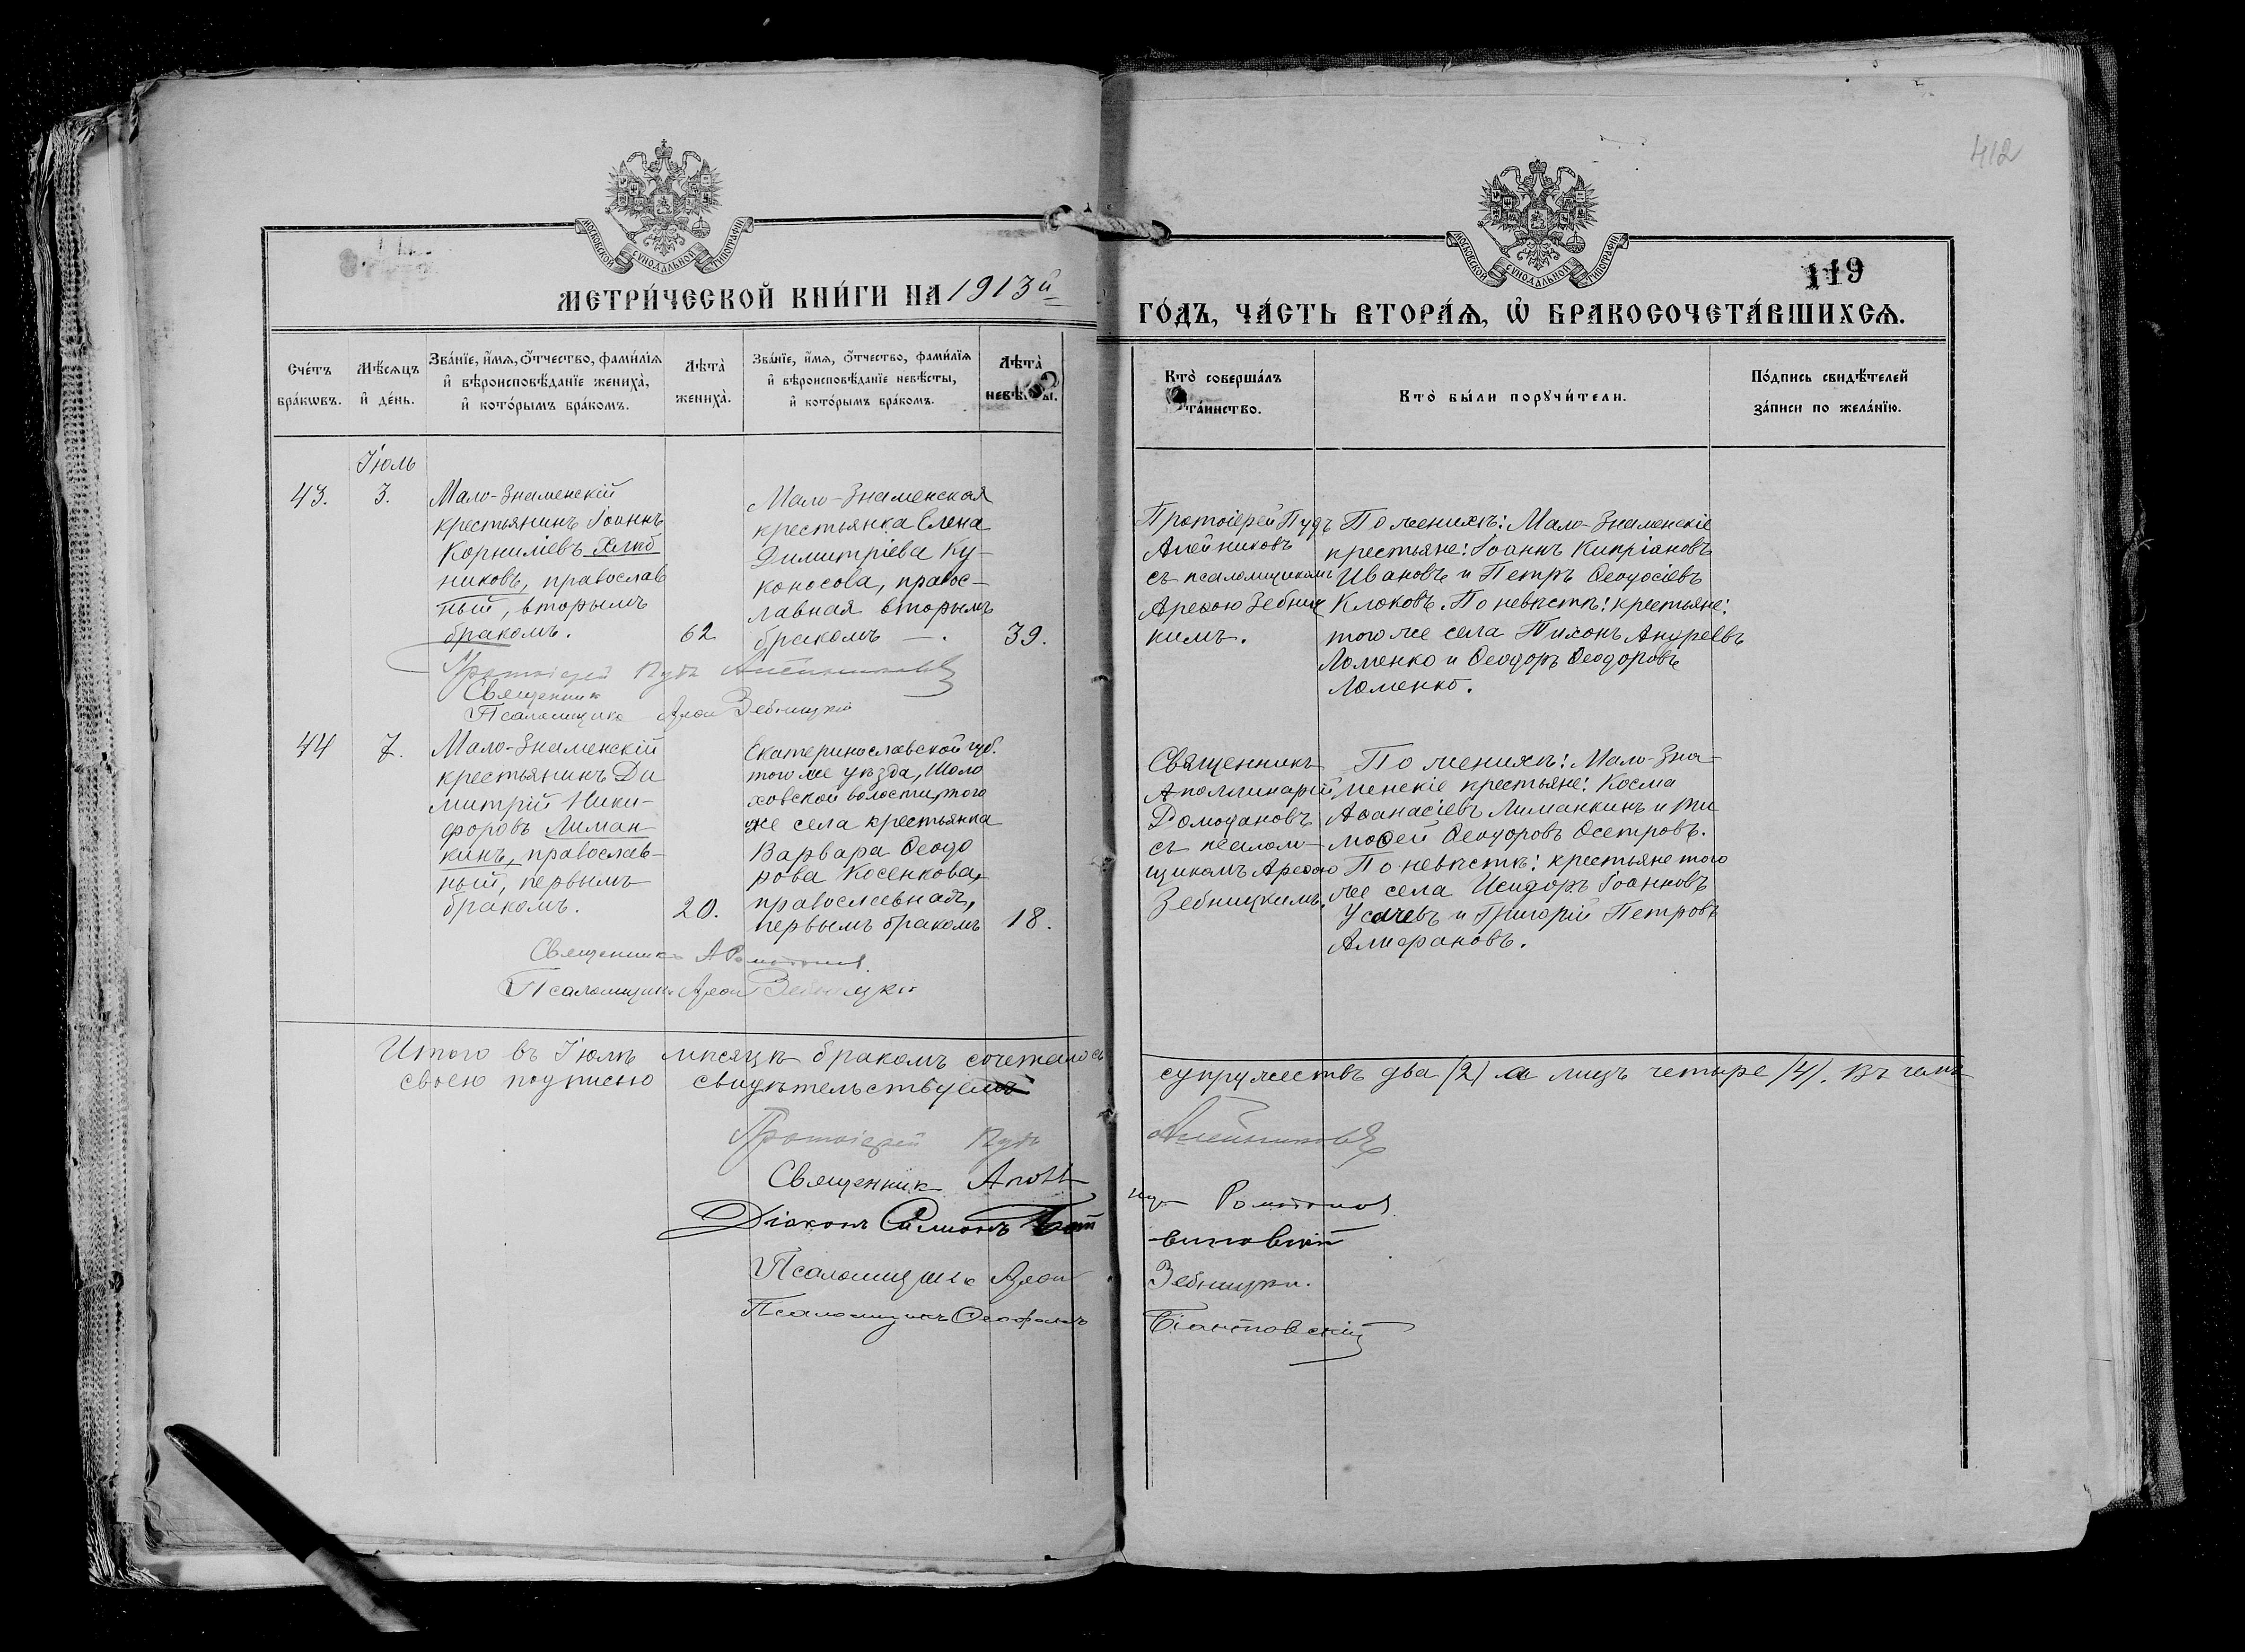 412
МОСКОВСКОЙ СѴНОДАЛЬНОЙ ТИПОГРАФІИ
МОСКОВСКОЙ СѴНОДАЛЬНОЙ ТИПОГРАФІИ
119
МЕТРИ́ЧЕСКОЙ КНИ́ГИ НА 1913й
ГО́ДЪ, ЧА́СТЬ ВТОРА́Ѧ, Ѽ БРАКОСОЧЕТА́ВШИХСѦ.
Сче́тъ бра́кѡвъ.
Мѣ́сѧцъ и҆ де́нь.
Зва́нїе, и҆́мѧ, ѻ҆́тчество, фами́лїѧ
и҆ вѣроисповѣ́данїе жениха̀,
и҆ кото́рымъ бра́комъ.
Лѣта̀ жениха̀.
Зва́нїе, и҆́мѧ, ѻ҆́тчество, фами́лїѧ
и҆ вѣроисповѣ́данїе невѣ́сты,
и҆ кото́рымъ бра́комъ.
Лѣта̀
Кто̀ соверша́лъ
та́инство.
Кто̀ бы́ли порꙋчи́тели.
По́дпись свидѣ́телей
за́писи по жела́нїю.
Іюль
43.
3.
Мало-Знаменскій
крестьянинъ Іоаннъ
Корниліевъ Хлѣб
никовъ, православ
ный, вторымъ
бракомъ.
62
Мало-Знаменская
крестьянка Елена
Димитріева Ку-
коносова, правос-
лавная вторымъ
бракомъ —.
39.
Протоіерей Пудъ
Алейниковъ
съ псаломщикомъ
Ареѳою Зебниц
кимъ.
По женихѣ: Мало-Знаменскіе
крестьяне: Іоаннъ Кипріановъ
Ивановъ и Петръ Ѳеодосіевъ
Клоковъ. По невѣстѣ: крестьяне:
того же села Тихонъ Андреевъ
Ломенко и Ѳеодоръ Ѳеодоровъ
Ломенко.
Протоіерей Пудъ Алейниковъ
Священник
Псаломщикъ Ареѳа Зебницкій
44
7.
Мало-Знаменскій
крестьянинъ Ди
митрій Ники-
форовъ Лиман
кинъ, православ-
ный, первымъ
бракомъ.
20.
Екатеринославской губ.
того же уѣзда, Шоло
ховской волости, того
же села крестьянка
Варвара Ѳеодо
рова Косенкова,
православная,
первымъ бракомъ
18.
Священникъ
Аполлинарій
Ромодановъ
съ псалом-
щикомъ Ареѳою
Зебницкимъ.
По женихѣ: Мало-Зна-
менскіе крестьяне: Косма
Аѳанасіевъ Лиманкинъ и Ти
моѳей Ѳеодоровъ Осетровъ.
По невѣстѣ: крестьяне того
же села Исидоръ Іоанновъ
Усачевъ и Григорій Петровъ
Алиѳрановъ.
Священникъ А Ромоданов
Псаломщикъ Ареѳа Зебницкій
Итого въ Іюлѣ мѣсяцѣ бракомъ сочеталось
супружествъ два /2/ а лицъ четыре /4/. Въ чемъ
своею подписью свидѣтельствуемъ
Протоіерей Пудъ Алейниковъ
Священник Аполл Ромоданов
Діаконъ Симонъ
Псаломщикъ Ареѳа Зебницкій
Псаломщикъ Ѳеофанъ